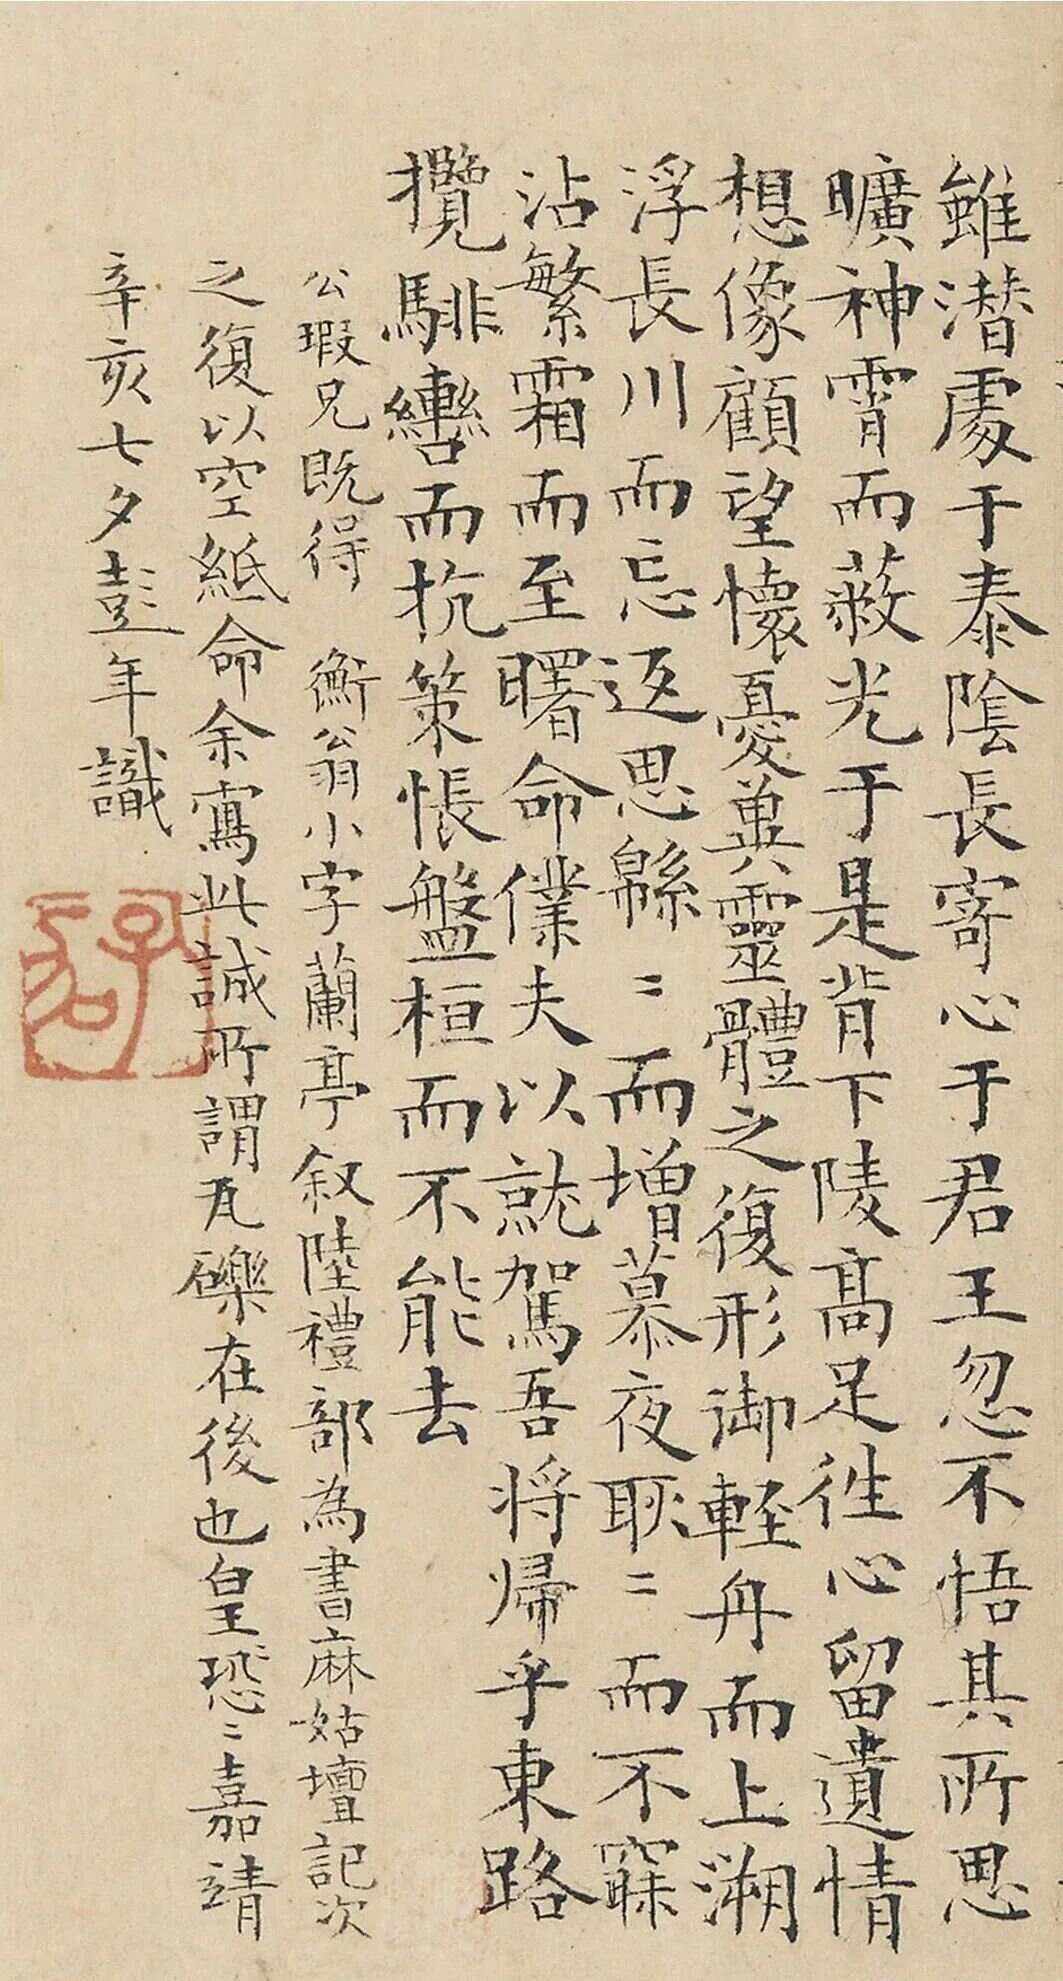 雖潛處于泰陰長寄心于君王忽不悟其所思
曠神霄而蔽光于是背下陵高足往心留遺情
想像顧望懷憂冀靈體之復形御輕舟而上溯
浮長川而忘返思緜〻而增慕夜耿〻而不寐
沾繁霜而至曙命僕夫以就駕吾將歸乎東路
攬騑轡而抗策悵盤桓而不能去
公瑕兄既得 衡翁小字蘭亭叙陸禮部為書麻姑壇記次
之復以空紙命余寫此誠所謂瓦礫在後也皇恐〻嘉靖
辛亥七夕彭年識